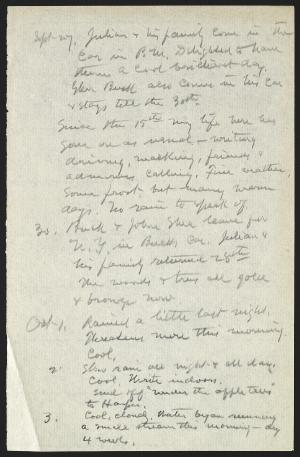 Sept. 27. Julian & his family come in their
car in P.M. Delighted to have
them. A cool brilliant day.
Glen Buck also comes in his car
& stays till the 30th.
Since the 15th my life here has
gone on as usual — writing
driving, walking, friends &
admirers calling. Fine weather,
some frost but many warm
days. No rain to speak of.
30. Buck & John Shea leave for
N.Y. in Bucks car. Julian &
his family returned 29th
The woods & trees all gold
& bronze now
Oct. 1. Rained a little last night.
Threatens more this morning.
Cool.
2. Slow rain all night & all day.
Cool. Write indoors.
Send off "Under the apple trees"
to Houghton
3. Cool, cloudy. Water began running
a small stream this morning — dry
4 weeks.